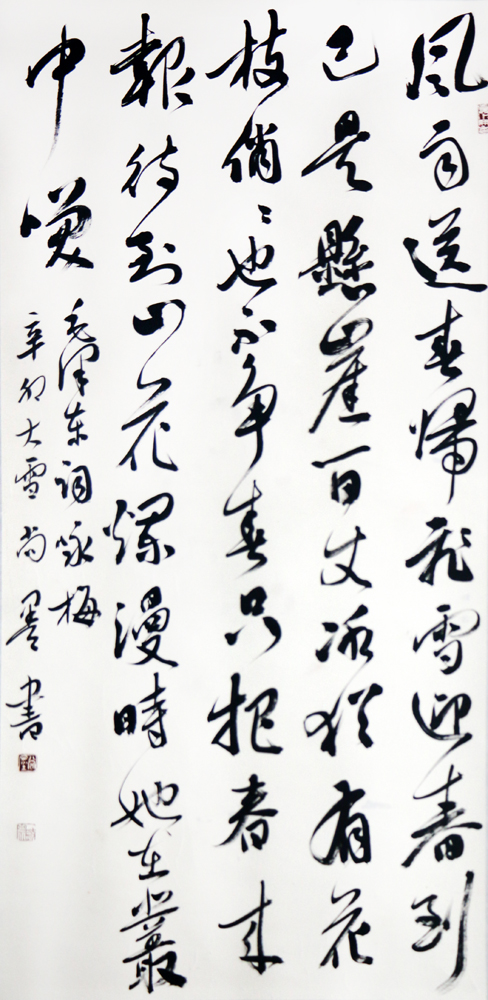 風雨送春歸飛雪迎春到
已是懸崖百丈冰猶有花
枝俏〻也不爭春只把春来
報待到山花爛漫時她在叢
中咲
毛澤东词咏梅
辛卯大雪尚墨書